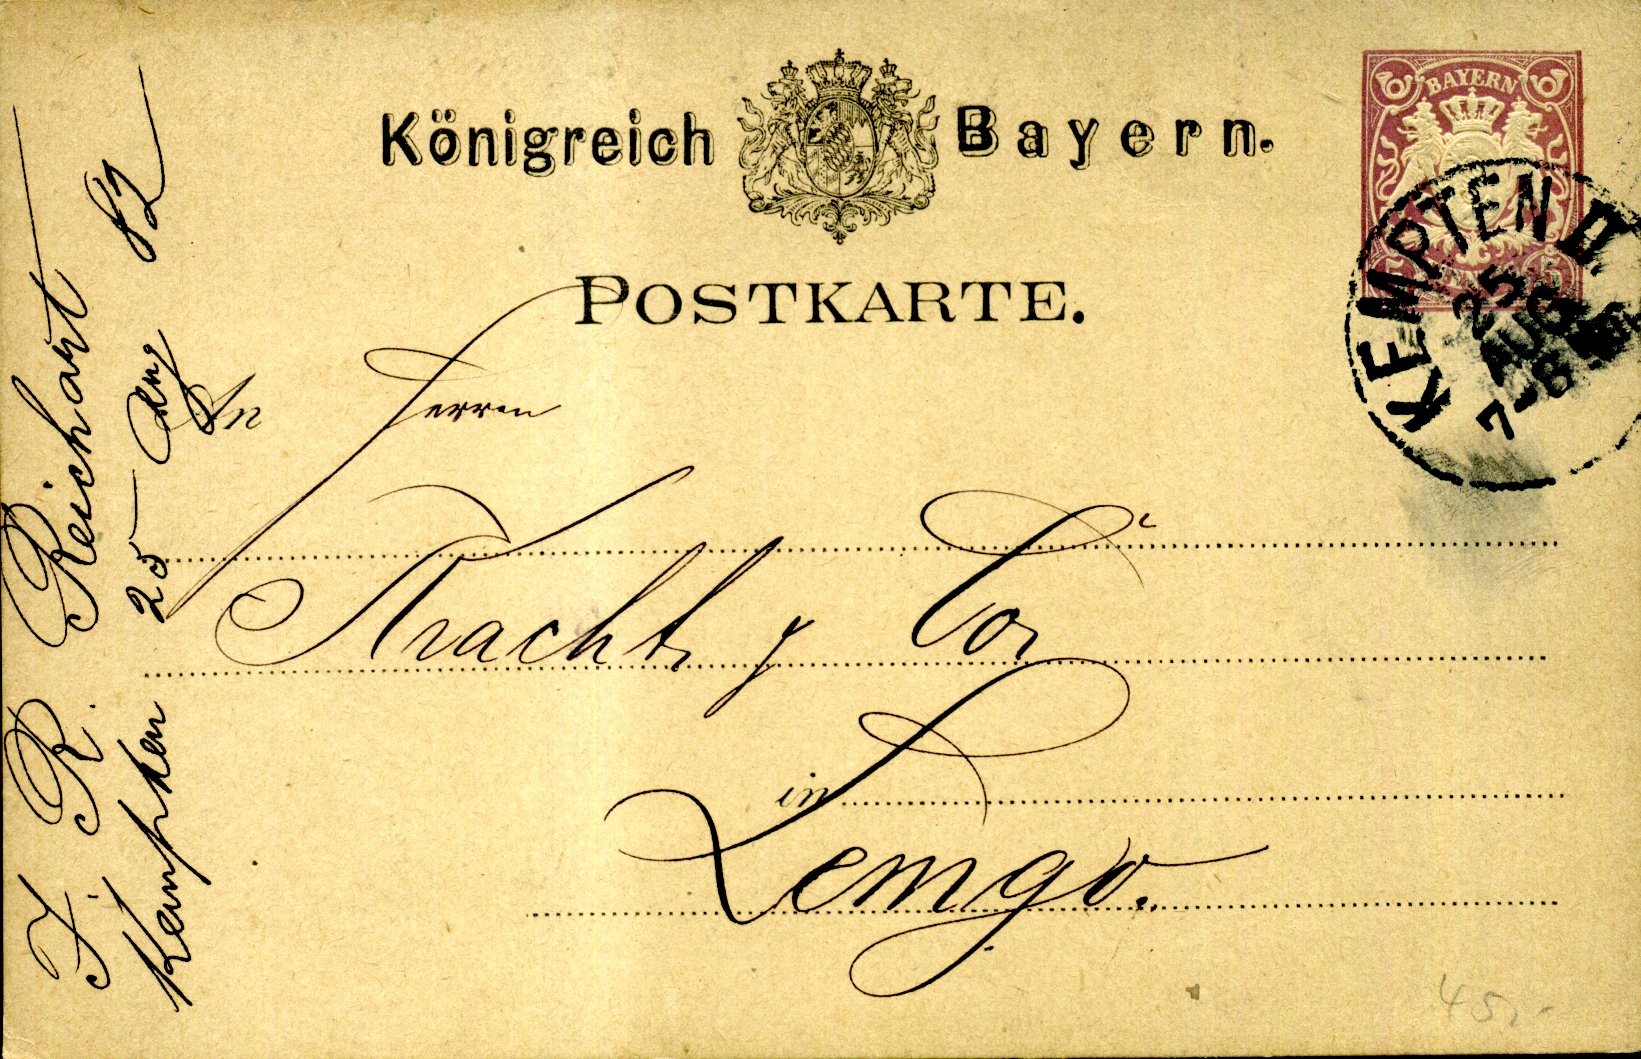 Königreich Bayern.
BAYERN
POSTKARTE.
KEMPTEN II
25
AUG
7-8
An Herren
Kracht & Co
in
Lemgo.
F. R. Reichart
Kempten 25 Aug 82
45,-